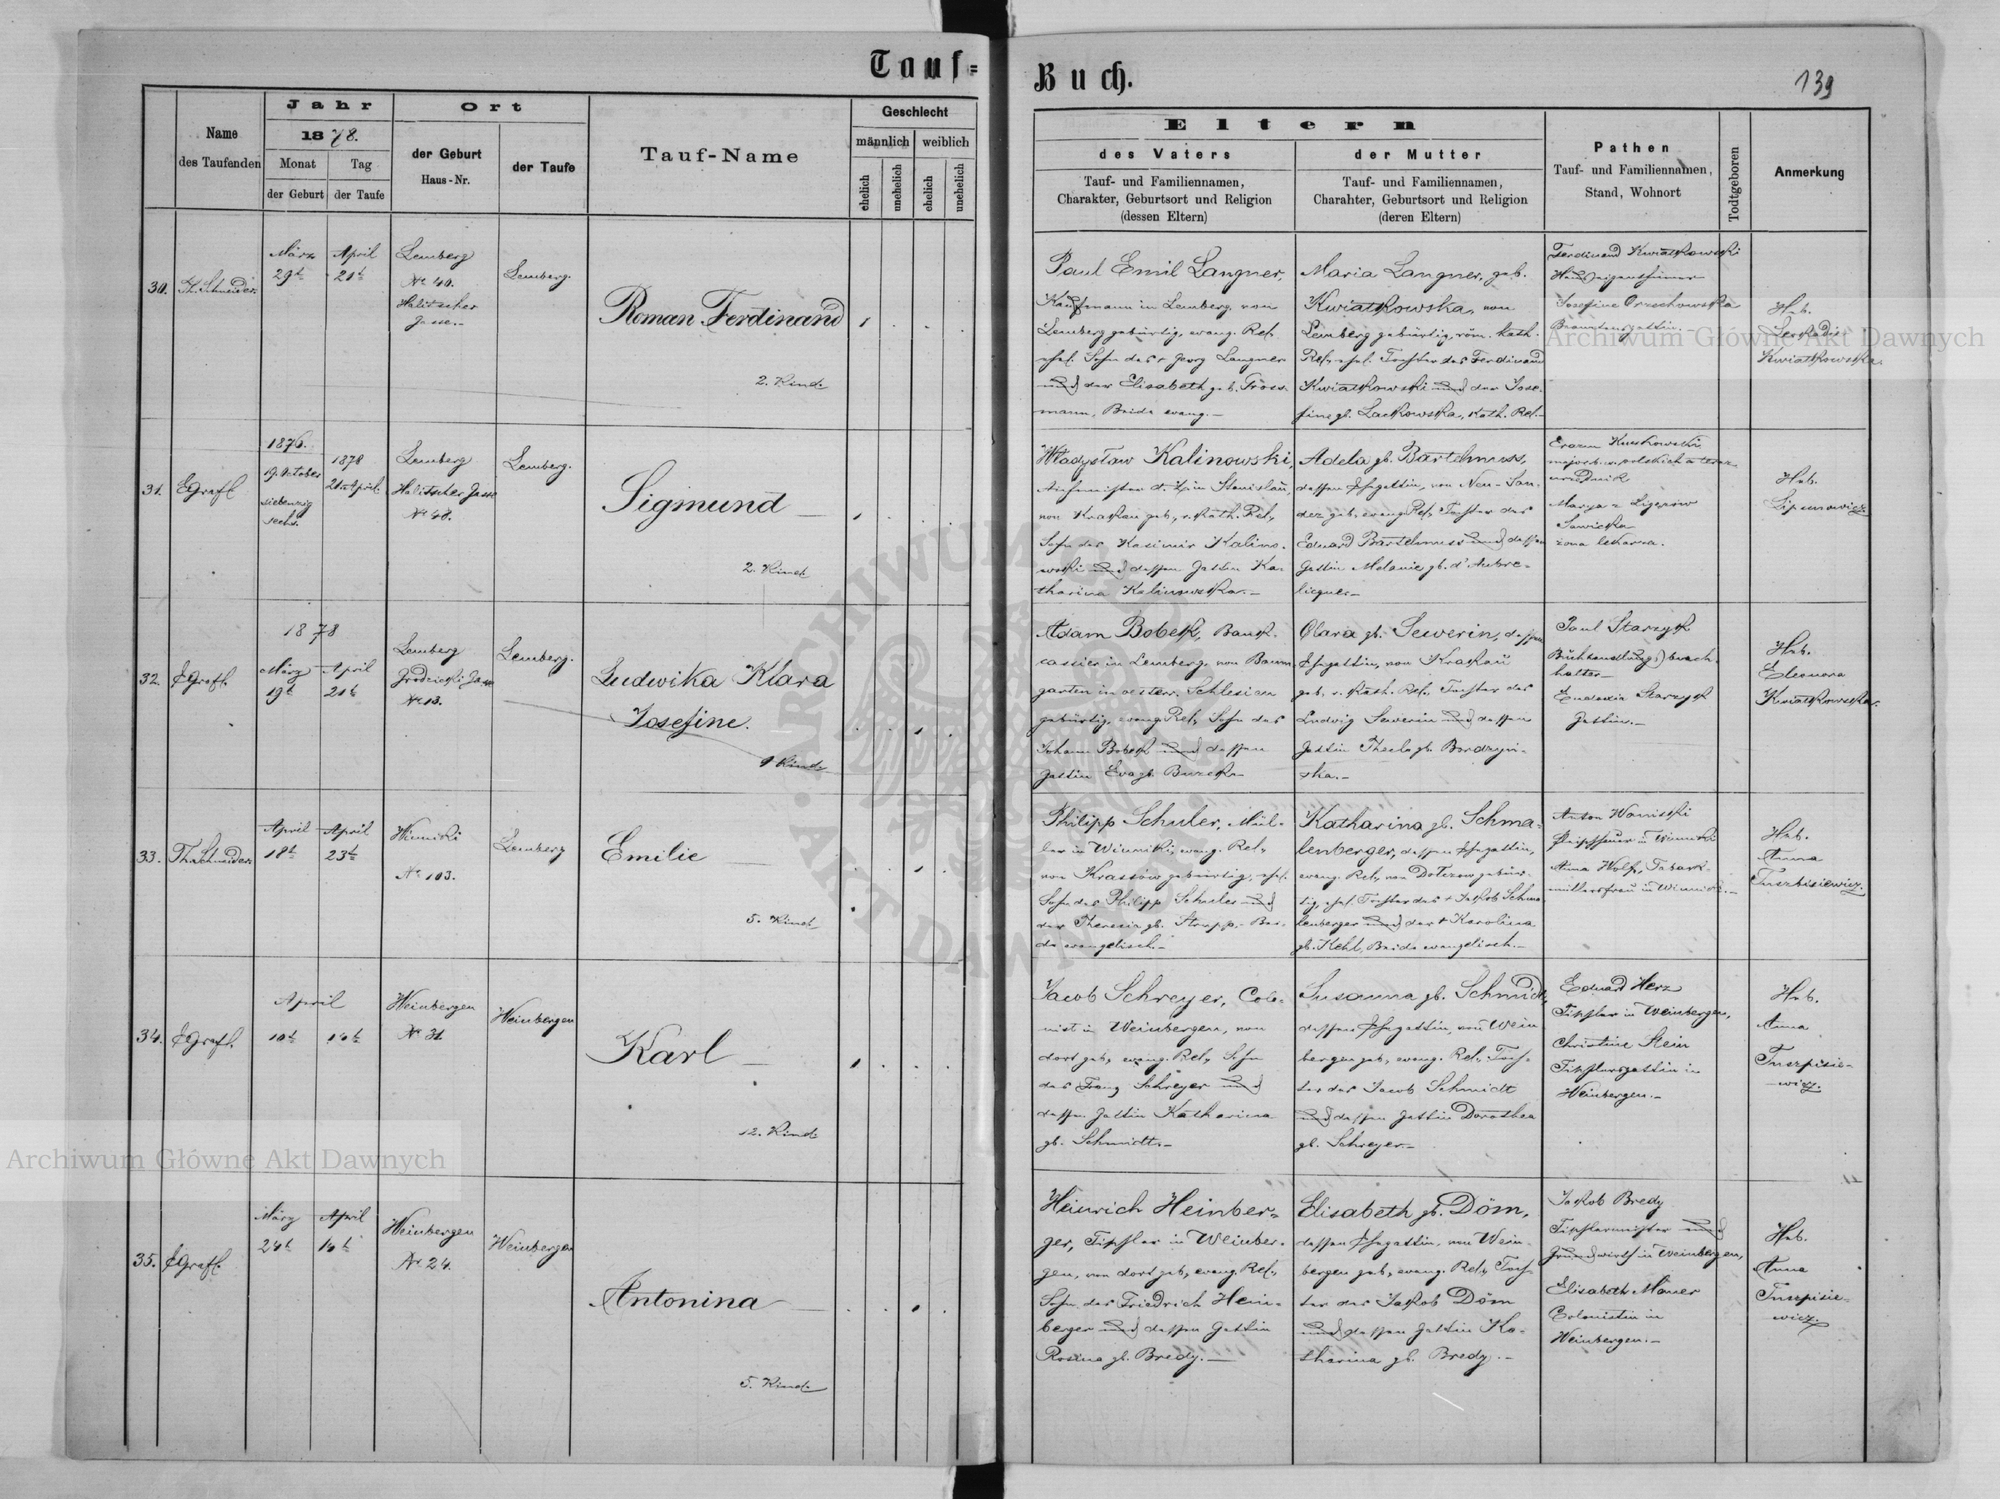 Tauf=
Buch.
139
Name
des Taufenden
Jahr
1878.
Monat
Tag
der Geburt
der Taufe
Ort
der Geburt
Haus-Nr.
der Taufe
Tauf-Name
Geschlecht
männlich
weiblich
ehelich
unehelich
ehelich
unehelich
Eltern
des Vaters
Tauf- und Familiennamen,
Charakter, Geburtsort und Religion
(dessen Eltern)
der Mutter
Tauf- und Familiennamen,
Charakter, Geburtsort und Religion
(deren Eltern)
Pathen
Tauf- und Familiennamen,
Stand, Wohnort
Todtgeboren
Anmerkung
30.
März
29t
April
21t
Lemberg
No 40.
Halitscher
Gasse.-
Lemberg.
Roman Ferdinand
2. Kind
Paul Emil Langner,
Kaufmann in Lemberg, von
Lemberg gebürtig, evang. Rel.
ehel. Sohn des + Georg Langner
und der Elisabeth geb.
mann, Beide evang.-
Maria Langner, geb.
Kwiatkowska, von
Lemberg gebürtig, röm. kath.
Rel., ehel. Tochter des Ferdinand
Kwiatkowski und der Jose-
fine gb. Lackowska, kath. Rel.-
Ferdinand Kwiatkowski
Hauseigenthümer
Josefine Orzechowska
Beamtensgattin.-
Heb.
Kwiatkowska.
31.
Egrafl
1876.
19. October
siebenzig
sechs.
1878
21t April.
Lemberg
Halitscher Gasse
No 48.
Lemberg.
Sigmund
2. Kind
Władysław Kalinowski,
in Stanislau,
von Krakau geb., r. kath. Rel.,
Sohn des Kasimir Kalino-
wski und dessen Gattin Ka-
tharina Kalinowska.-
Adela gb. Bartelmuss,
dessen Ehegattin, von Neu-San-
dez geb. evang. Rel., Tochter des
Eduard Bartelmuss und dessen
Gattin Melanie gb. d'Aubre-
licques-
żona lekarza.
Heb.
32.
Egrafl.
1878
März
19t
April
21t
Lemberg
No 13.
Lemberg.
Ludwika Klara
Josefine.
1 Kind
Adam Bobek, Bank-
cassier in Lemberg, von Baum-
garten in oesterr. Schlesien
gebürtig, evang. Rel., Sohn des
Johann Bobek und dessen
Gattin Eva gb.
Clara gb. Sewerin, dessen
Ehegattin, von Krakau
geb. r. kath. Rel. Tochter des
Ludwig Sewerin und dessen
Gattin Thecla gb.
ska.-
Paul Starzyk
Buchhandlungsbuch-
halter-
Starzyk
Gattin.-
Heb.
Eleonora
Kwiatkowska.
33.
April
18t
April
23t
Winniki
No 103.
Lemberg
Emilie
5. Kind
Philipp Schuler, Mül-
ler in Winniki, evang. Rel.,
von Krassów gebürtig, ehel.
Sohn des Philipp Schuler und
der Theresia gb. Bei-
de evangelisch.-
Katharina gb. Schma-
lenberger, dessen Ehegattin,
evang. Rel., von gebür-
tig, ehel. Tochter des + Jakob Schma-
lenberger und der + Karolina
gb. Kehl, Beide evangelisch.-
Anton
in Winniki
Anna Wolf,
müllersfrau in Winniki.-
Heb.
Anna
34.
Egrafl.
April
10t
14t
Weinbergen
No 31
Weinbergen
Karl
12. Kind
Jacob Schreyer, Colo-
nist in Weinbergen, von
dort geb., evang. Rel., Sohn
des Franz Schreyer und
dessen Gattin Katharina
gb. Schmidt.-
Susanna gb. Schmidt,
dessen Ehegattin, von Wein-
bergen geb., evang. Rel., Toch-
ter des Jacob Schmidt
und dessen Gattin Dorothea
gb. Schreyer-
Eduard Herz
Tischler in Weinbergen,
Christine Stein
Tischlersgattin in
Weinbergen.-
Heb.
Anna
35.
Egrafl.
März
24t
April
14t
Weinbergen
No 24.
Weinbergen
Antonina
5. Kind
Heinrich Heinber-
ger, Tischler in Weinber-
gen, von dort geb., evang. Rel.,
Sohn des Friedrich Hein-
berger und dessen Gattin
Rosina gb. Bredy.-
Elisabeth gb. Döm,
dessen Ehegattin, von Wein-
bergen geb., evang. Rel., Toch-
ter des Jakob Döm
und dessen Gattin Ka-
tharina gb. Bredy.-
Jakob Bredy
Tischlermeister und
Grundwirth in Weinbergen,
Elisabeth Mauer
Colonistin in
Weinbergen.-
Heb.
Anna
Archiwum Główne Akt Dawnych
Archiwum Główne Akt Dawnych
ARCHIWUM
AKT DAWNYCH